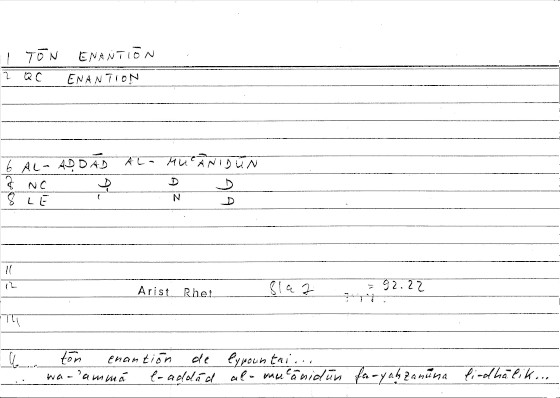 1 TŌN ENANTIŌN
2 QC ENANTIOṆ
6 AL-AḌDĀD AL-MUʿĀNIDŪN
7 NC D D D
8 LE ' N D
11
12 Arist Rhet 81a 2 = 92.22
14
tōn enantiōn de lypountai...
.. wa-ʾammā l-aḍdād al-muʿānidūn fa-yaḥzanūna li-dhālik...